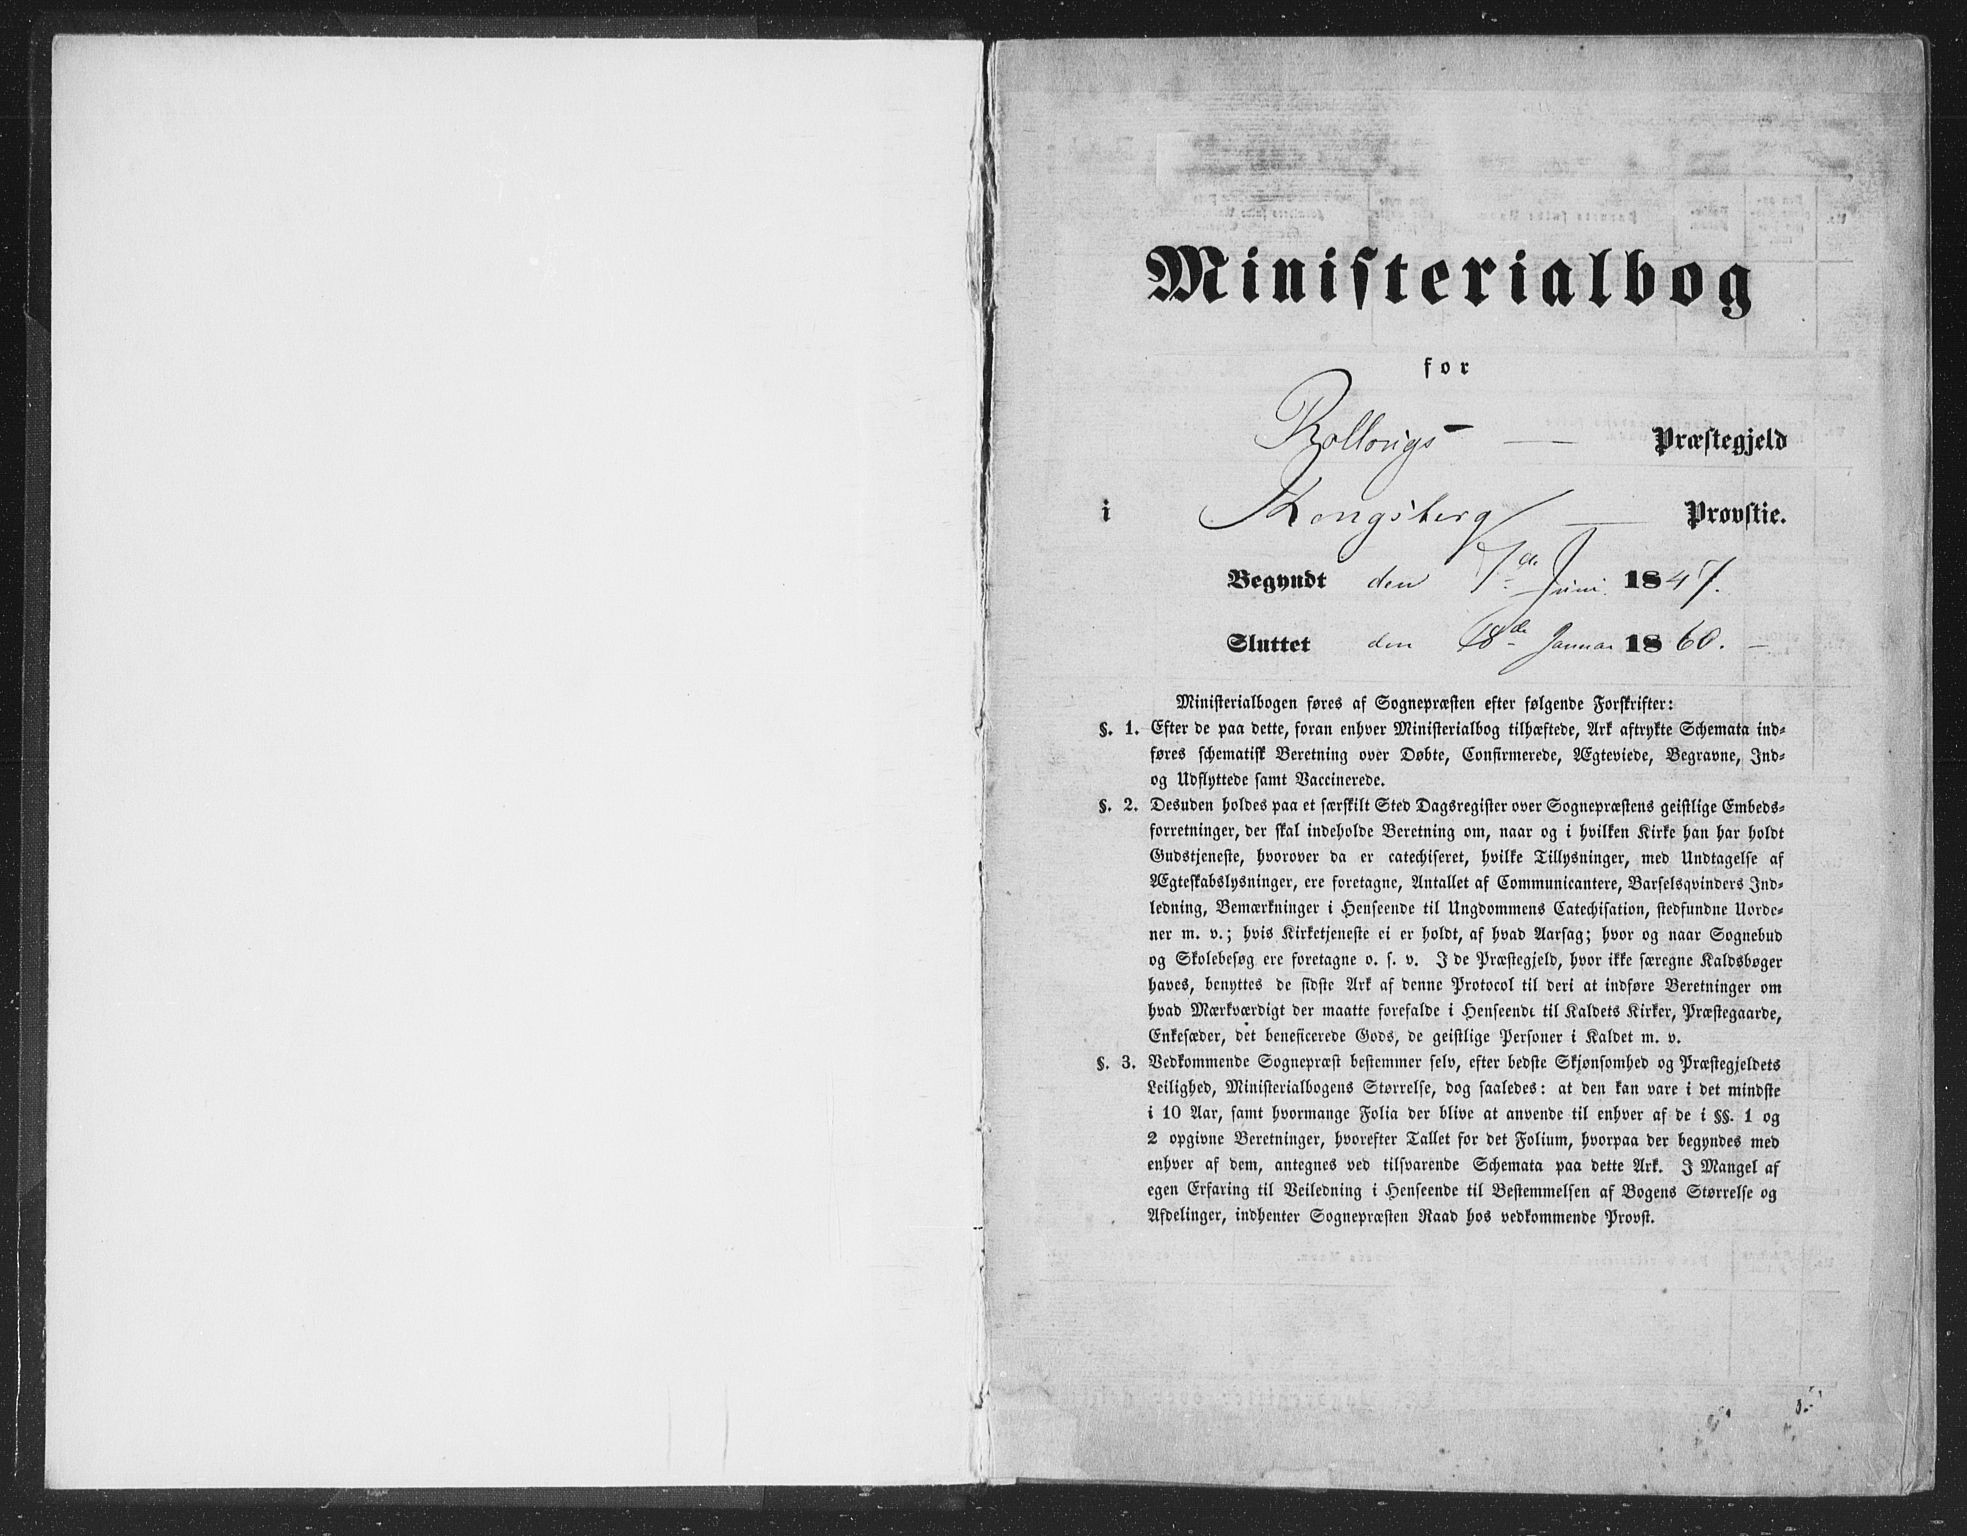 Ministerialbog
for
Rollougs — Præstegjeld
i Kongsberg — Provstie.
Begyndt den 7de Juni 1847.
Sluttet den 18de Januar 1860. —
Ministerialbogen føres af Sognepræsten efter følgende Forskrifter:
§. 1. Efter de paa dette, foran enhver Ministerialbog tilhæftede, Ark aftrykte Schemata ind-
føres schematisk Beretning over Døbte, Confirmerede, Ægteviede, Begravne, Ind-
og Udflyttede samt Vaccinerede.
§. 2. Desuden holdes paa et særskilt Sted Dagsregister over Sognepræstens geistlige Embeds-
forretninger, der skal indeholde Beretning om, naar og i hvilken Kirke han har holdt
Gudstjeneste, hvorover da er catechiseret, hvilke Tillysninger, med Undtagelse af
Ægteskabslysninger, ere foretagne, Antallet af Communicantere, Barselsqvinders Ind-
ledning, Bemærkninger i Henseende til Ungdommens Catechisation, stedfundne Uorde-
ner m. v.; hvis Kirketjeneste ei er holdt, af hvad Aarsag; hvor og naar Sognebud
og Skolebesøg ere foretagne o. s. v. I de Præstegjeld, hvor ikke særegne Kaldsbøger
haves, benyttes de sidste Ark af denne Protocol til deri at indføre Beretninger om
hvad Mærkværdigt der maatte forefalde i Henseende til Kaldets Kirker, Præstegaarde,
Enkesæder, det beneficerede Gods, de geistlige Personer i Kaldet m. v.
§. 3. Vedkommende Sognepræst bestemmer selv, efter bedste Skjønsomhed og Præstegjeldets
Leilighed, Ministerialbogens Størrelse, dog saaledes: at den kan vare i det mindste
i 10 Aar, samt hvormange Folia der blive at anvende til enhver af de i §§. 1 og
2 opgivne Beretninger, hvorefter Tallet for det Folium, hvorpaa der begyndes med
enhver af dem, antegnes ved tilsvarende Schemata paa dette Ark. I Mangel af
egen Erfaring til Veiledning i Henseende til Bestemmelsen af Bogens Størrelse og
Afdelinger, indhenter Sognepræsten Raad hos vedkommende Provst.